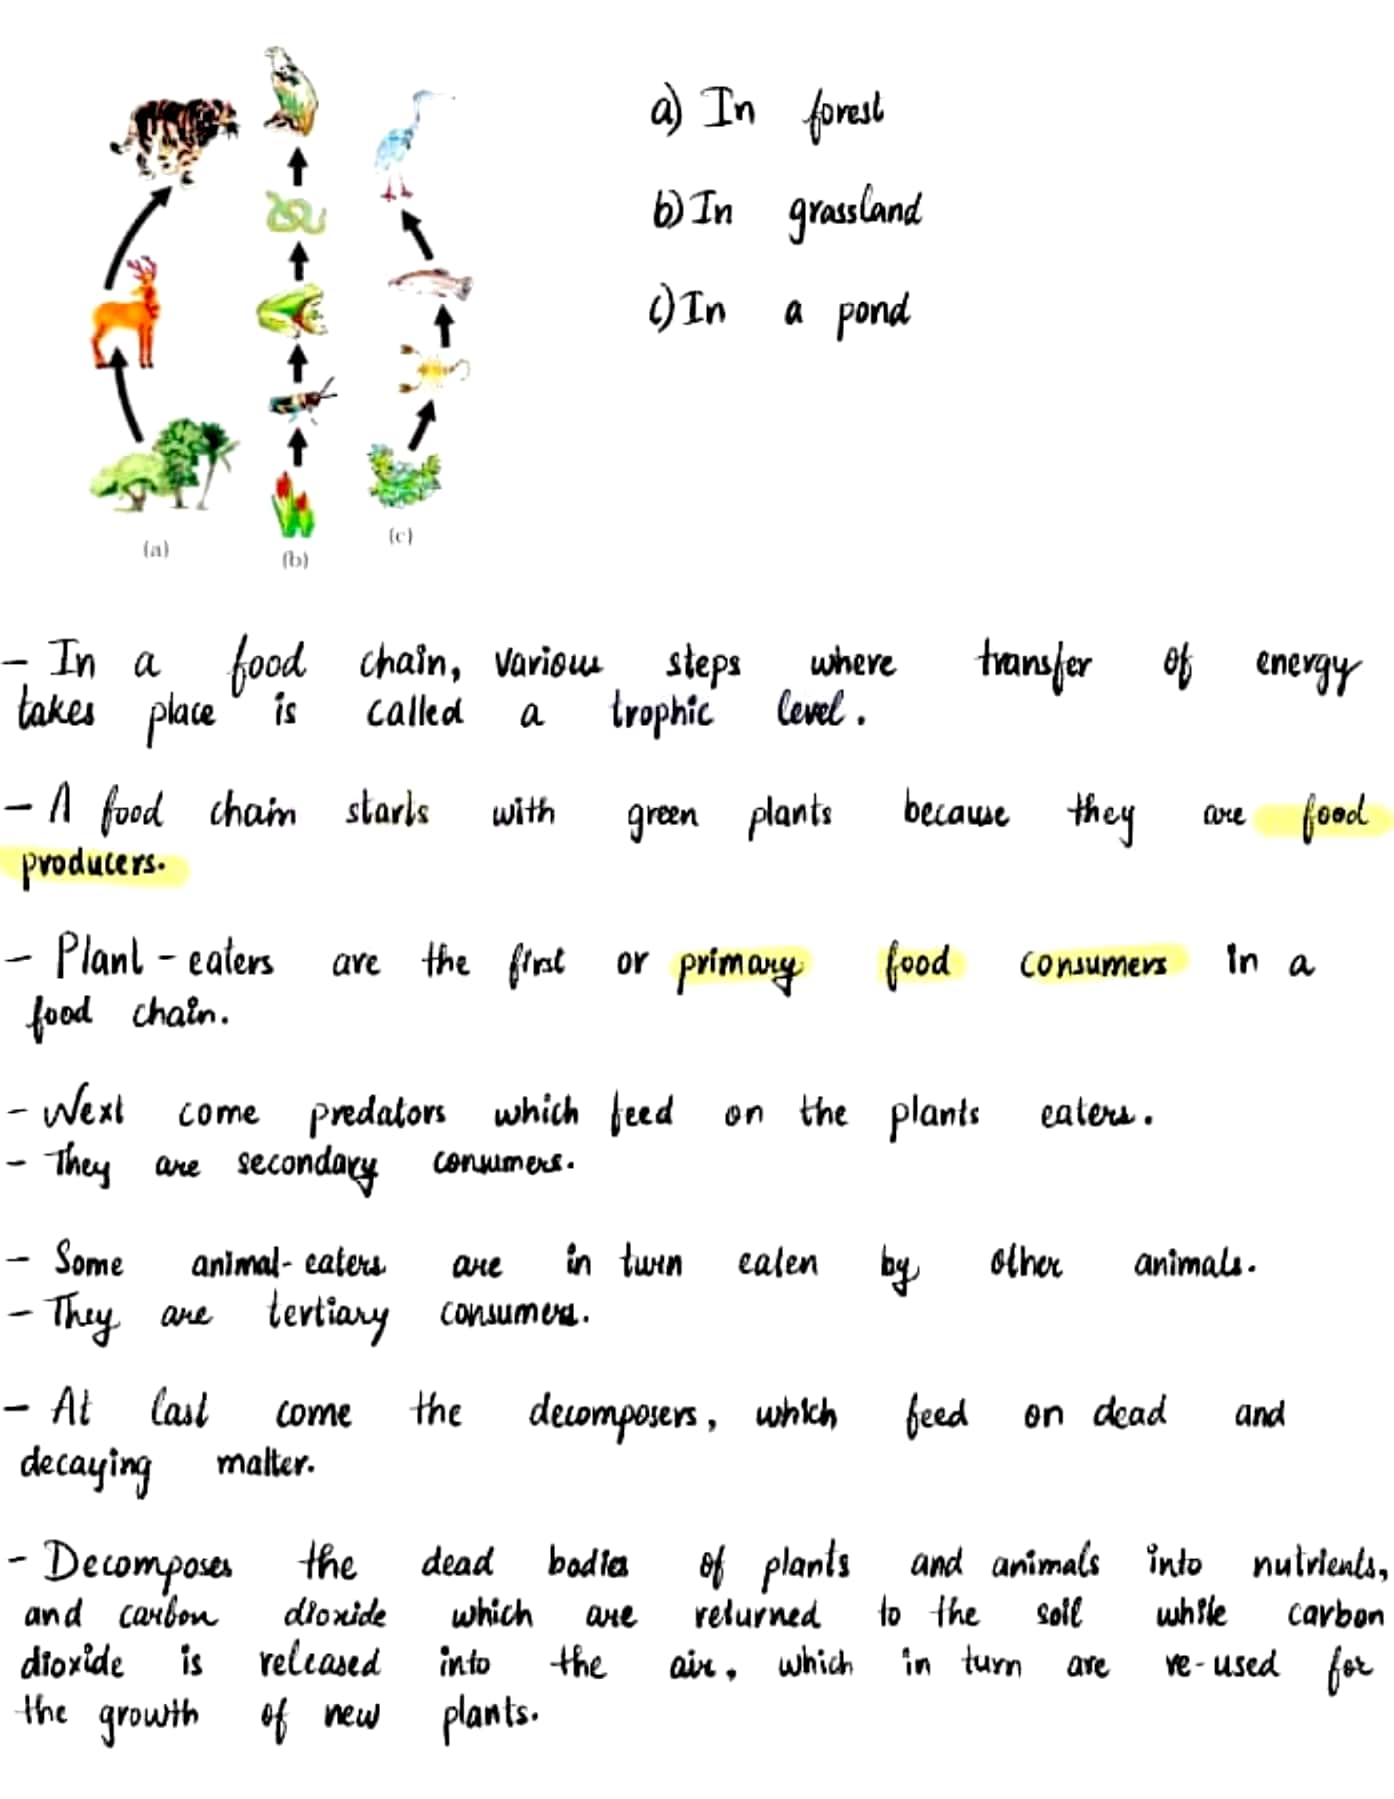 a) In forest
b) In grassland
c) In a pond
(a)
(b)
(c)
- In a food chain, various steps where transfer of energy
takes place is called a trophic level.
- A food chain starts with green plants because they are food
producers.
- Plant-eaters are the first or primary food consumers in a
food chain.
- Next come predators which feed on the plants eaters.
- They are secondary consumers.
- Some animal-eaters are in turn eaten by other animals.
- They are tertiary consumers.
- At last come the decomposers, which feed on dead and
decaying matter.
- Decomposes the dead bodies of plants and animals into nutrients,
and carbon dioxide which are returned to the soil while carbon
dioxide is released into the air, which in turn are re-used for
the growth of new plants.